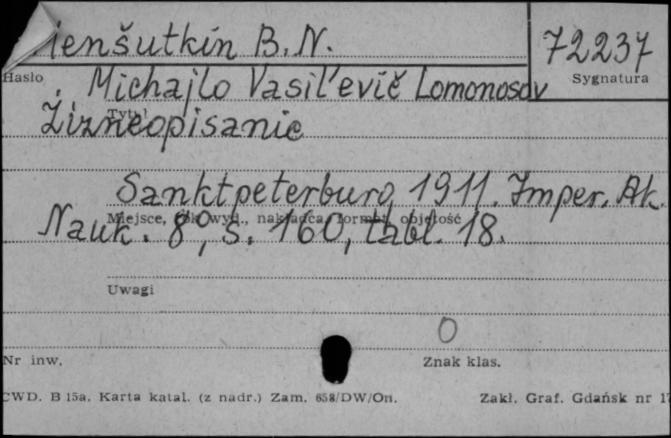 ienšutkin B. N.
72237
Hasło
Sygnatura
Michajlo Vasil'evič Lomonosov
Tytuł
Žizneopisanie
Sanktpeterburg 1911. Imper. Ak.
Miejsce, rok wyd., nakładca, format, objętość
Nauk. 8°, s. 160, tabl. 18.
Uwagi
0
Nr inw.
Znak klas.
CWD. B 15a. Karta katal. (z nadr.) Zam. 658/DW/On.
Zakł. Graf. Gdańsk nr 17